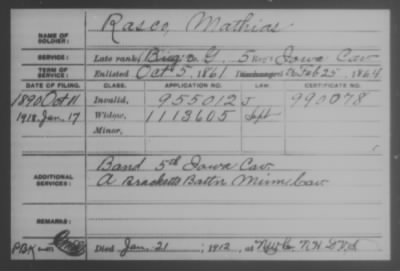 NAME OF SOLDIER: Rasco, Mathias
SERVICE: Late rank, Co. G, 5 Reg't Iowa Cav
TERM OF SERVICE: Enlisted Oct 5, 1861 Discharged Feb 25, 1864
DATE OF FILING. CLASS. APPLICATION NO. LAW. CERTIFICATE NO.
1890 Oct 11 Invalid, 955012 J 990078
1918 Jan. 17 Widow, 1113605
Minor,
ADDITIONAL SERVICES: Band 5th Iowa Cav.
A Bracketts Batt'n Minn Cav
REMARKS:
PBK Died Jan. 21, 1912, at